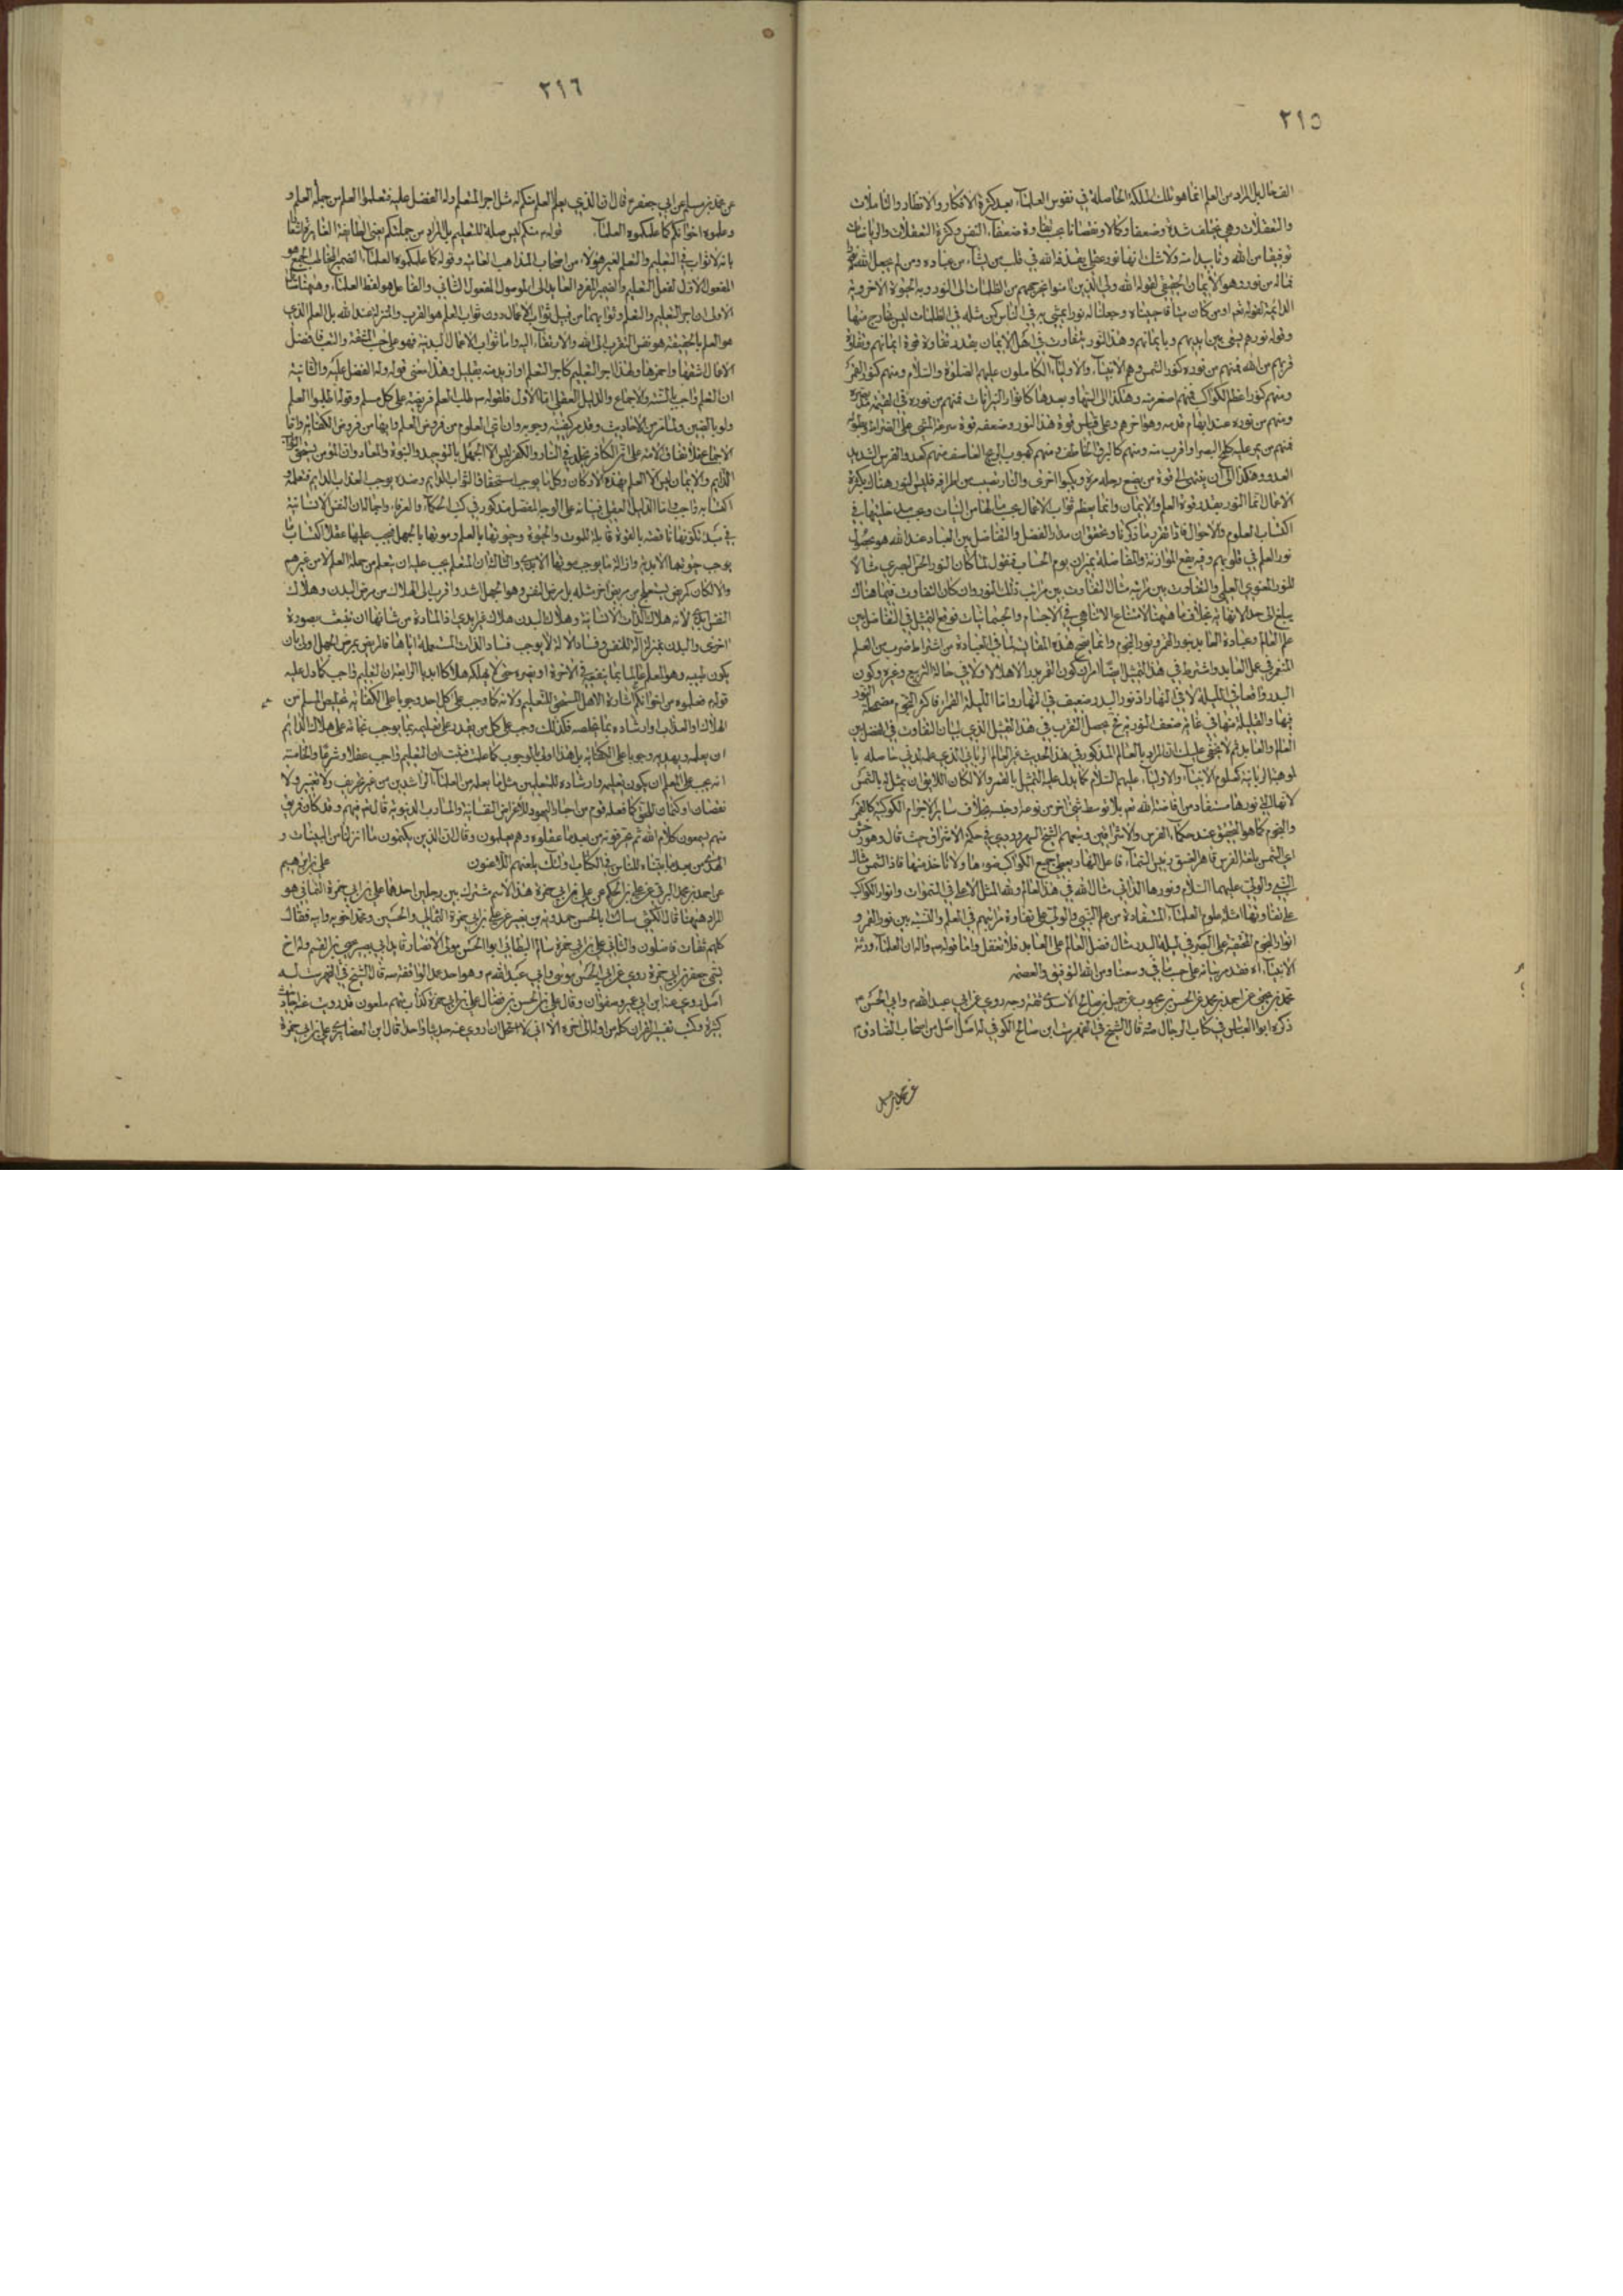 ٢١٥
الفعال بل المراد من العلم انما هو تلك الملكة الحاصلة في نفوس العلماء بعد كثرة الافكار والانظار والتأملات
والتعقلات وهي تختلف شدة وضعفا وكمالا ونقصانا بحسب صفاء النفس وكثرة التعقلات والرياضات
توفيقا من الله وتأييدا منه ولا شك انها نور عقلي يقذفه الله في قلب من يشاء من عباده ومن لم يجعل الله له نورا
فماله من نور وهو الايمان الحقيقي لقوله الله ولي الذين امنوا يخرجهم من الظلمات الى النور وبه الحيوة الاخروية
الدائمة لقوله تعم اومن كان ميتا فاحييناه وجعلنا له نورا يمشي به في الناس كمن مثله في الظلمات ليس بخارج منها
وقوله نورهم يسعى بين ايديهم وبايمانهم وهذا النور يتفاوت في اهل الايمان بقدر تفاوت قوة ايمانهم وتفاوت
قربهم من الله فمنهم من نوره كنور الشمس وهم الانبياء والاولياء الكاملون عليهم الصلوة والسلام ومنهم كنور القمر
ومنهم كنور اعظم الكواكب فمنهم اصغر منه وهكذا الى السها وبعدها كانوار
ومنهم من نوره عند ابهام قدمه وهو اخرهم وعلى قياس قوة هذا النور وضعفه قوة سرعة المشي على الصراط
فمنهم من يمر عليه كلمح البصر او اقرب منه ومنهم كالبرق الخاطف ومنهم كهبوب الريح العاصف ومنهم كعدو الفرس الشديد
العدو وهكذا الى ان ينتهي الى قوة من يضع رجله مرة ويكبو اخرى والنار تصيب من اطرافه فليس النور هناك بكثرة
الاعمال انما النور بقدر قوة العلم والايمان وانما يعظم ثواب الاعمال بحسب ما لها من النيات وبحسب مدخليتها في
اكتساب العلوم والاحوال فاذا تقرر ما ذكرنا وتحقق ان مدار الفضل والتفاضل بين العباد عند الله هو بحصول
نور العلم في قلوبهم وفيه يقع الموازنة والمفاضلة بميزان يوم الحساب فنقول لما كان النور الحسي البصري مثالا
للنور المعنوي العلمي والتفاوت بين مراتبه مثال التفاوت بين مراتب ذلك النور وان كان التفاوت فيما هناك
يبلغ الى حد لا نهاية بخلاف ما هيهنا لامتناع اللاتناهي في الاجسام والجسمانيات فوقع التمثيل في التفاضل بين
علم العالم وعبادة العابد بنور القمر ونور النجوم وانما يصح هذه المقايسة لما في العبادة من اشتراط ضرب من العلم
المثمر في عمل العابد واشترط في هذا التمثيل ايضا امران كون القمر بدرا لا هلالا ولا في حالة التربيع وغيره وكون
البدر واقعا في الليلة لا في النهار اذ نور البدر ضعيف في النهار واما الليلة القمراء فاكثر النجوم مضمحلة النور
فيها والقليلة منها في غاية ضعف النورية
العالم والعابد ثم لا يخفى عليك ان المراد بالعالم المذكور في هذا الحديث غير العالم الرباني الذي علمه لدني حاصله با
لموهبة الربانية كعلوم الانبياء والاولياء عليهم السلام كما يدل عليه التمثيل بالقمر والا لكان اللايق ان يمثل له بالشمس
لانها التي نورها مستفاد من افاضة الله تعم بلا توسط شيء اخر من نوعه وجنسه بخلاف ساير الاجرام الكوكبية كالقمر
والنجوم كما هو التحقيق عند حكماء الفرس والاشراقيين وتبعهم الشيخ السهروردي في حكمة الاشراق حيث قال وهورخش
اي الشمس بلغة الفرس قاهر الغسق رئيس السماء فاعل النهار يعطي جميع الكواكب ضوءها ولا ياخذ منها فاذا الشمس مثال
النبي والولي عليهما السلام ونورها الذاتي مثال الله في هذا العالم ولله المثل الاعلى في السموات وانوار الكواكب
على تفاوتها امثلة علوم العلماء المستفادة من علم النبي والولي على تفاوت مراتبهم في العلم والنسبة بين نور القمر و
انوار النجوم المختفية على البصر في ليلة البدر مثال فضل العالم على العابد فلا تغفل واما قوله ص وان العلماء ورثة
الانبياء اه فقد مر بيانه على حسب ما في وسعنا ومن الله التوفيق والعصمة
محمد بن يحيى عن احمد بن محمد عن الحسن بن محبوب عن جميل بن صالح الاسدي ثقة وجه روى عن ابي عبد الله ع وابي الحسن ع
ذكره ابو العباس في كتاب الرجال صه قال الشيخ في الفهرست ابن صالح الكوفي له اصل من اصحاب الصادق ع
عن محمد بن مسلم
٢١٦
عن محمد بن مسلم عن ابي جعفر ع قال ان الذي يعلم العلم منكم له مثل اجر المتعلم وله الفضل عليه فتعلموا العلم من حملة العلم و
وعلموه اخوانكم كما علمكموه العلماء قوله منكم ليس صلة للتعليم بل المراد من جملتكم يعني الطائفة
بانه لا ثواب في التعليم والتعلم لغير هؤلاء من اصحاب المذاهب وقوله كما علمكموه العلماء الضمير المخاطب الجمع هو
المفعول الاول لفعل التعليم والضمير المفرد العايد الى الموصول المفعول الثاني والفاعل هو لفظ العلماء وهيهنا مسائل
الاولى ان اجر التعليم والتعلم وثوابهما من قبيل ثواب الاعمال دون ثواب العلم هو القرب والمنزلة عند الله بل العلم الذي
هو العلم بالحقيقة هو نفس التقرب الى الله والارتقاء اليه واما ثواب الاعمال البدنية فهو على حسب المشقة والتعب فافضل
الاعمال اشقها واحمزها ولهذا اجر التعليم كاجر التعلم او ازيد منه بقليل وهذا معنى قوله وله الفضل عليه والثانية
ان التعلم واجب بالسنة والاجماع والدليل العقلي اما الاول فلقوله ص طلب العلم فريضة على كل مسلم وقوله اطلبوا العلم
ولو بالصين ولما مر من الاحاديث وقد مر كيفية وجوبه وان اي العلوم من فروض العلم وايها من فروض الكفاية واما
الاجماع فلاتفاق الامة على ان الكافر مخلد في النار والكفر ليس الا الجهل بالتوحيد والنبوة والمعاد وان المؤمن يستحق الثواب
الدايم والايمان ليس الا العلم بهذه الاركان وكل ما يوجب استحقاق الثواب الدايم وضده يوجب العذاب الدايم فتعلمه و
اكتسابه واجب واما الدليل العقلي فبيانه على الوجه المفصل مذكور في كتب الحكماء والعرفاء واجمالا ان النفس الانسانية
في مبدء تكونها ناقصة بالقوة قابلة للموت والحيوة وحيوتها بالعلم وموتها بالجهل فيجب عليها عقلا اكتساب ما
يوجب حيوتها الابدية وازالة ما يوجب موتها الابدي والثالثة ان المتعلم يجب عليه ان يتعلم من حملة العلم لا من غيرهم
والا لكان كمريض يستعلج من مريض اخر مثله بل مرض النفس وهو الجهل اشد واقرب الى الهلاك من مرض البدن وهلاك
النفس ابدي لانه هلاك الذات الانسانية وهلاك البدن هلاك غير ابدي اذ المادة من شانها ان تتلبس بصورة
اخرى والبدن بمنزلة الة للنفس وفساد الالة لا يوجب فساد الذات المستعملة اياها فالمريض بمرض الجهل اولى بان
يكون طبيبه وهو المعلم عالما بما ينفعه في الاخرة او يضره حتى لا يهلكه هلاكا ابديا الرابعة ان التعليم واجب كما دل عليه
قوله فعلموه من اخوانكم اشارة الاهل المستحق للتعليم ولانه كما وجب على كل احد وجوبا على الكفاية تخليص المسلم من
الهلاك والعذاب وارشاده بما يخلصه فكذلك وجب على كل من يقدر على تعليمه بما يوجب نجاته على هلاك الدايم
ان يعلمه ويهديه وجوبا على الكفاية بل هذا اولى بالوجوب كما علمت فثبت ان التعليم واجب عقلا وشرعا والخامسة
انه يجب على المعلم ان يكون تعليمه وارشاده للمتعلمين مثل ما تعلمه من العلماء الراشدين من غير تحريف ولا تغيير ولا
نقصان او كتمان للحق كما فعله قوم من احبار اليهود للاغراض النفسانية والمآرب الدنيوية قال تعم فيهم وقد كان فريق
منهم يسمعون كلام الله ثم يحرفونه من بعد ما عقلوه وهم يعلمون وقال ان الذين يكتمون ما انزلنا من البينات و
الهدى من بعد ما بيناه للناس في الكتاب اولئك يلعنهم اللاعنون علي بن ابرهيم
عن احمد بن محمد البرقي عن علي بن الحكم عن علي بن ابي حمزة هذا الاسم مشترك بين رجلين احدهما علي بن ابي حمزة الثمالي هو
المراد هيهنا قال الكشي سالت ابا الحسن حمدويه بن نصير عن علي بن ابي حمزة الثمالي والحسين ومحمد اخويه وابيه فقال
كلهم ثقات فاضلون والثاني علي بن ابي حمزة سالم البطائني ابو الحسن مولى الانصار قايد ابي بصير يحيى بن القسم وله اخ
يسمى جعفر بن ابي حمزة روى عن ابي الحسن موسى وابي عبد الله ع وهو احد عمد الواقفة صه قال الشيخ في الفهرست له
اصل روى عنه ابن ابي عمير وصفوان وقال علي بن الحسن بن فضال علي بن ابي حمزة كذاب متهم ملعون قد رويت عنه احاديث
كثيرة وكتبت تفسير القران كله من اوله الى اخره الا اني لا استحل ان اروي عنه حديثا واحدا قال ابن الغضايري علي بن ابي حمزة